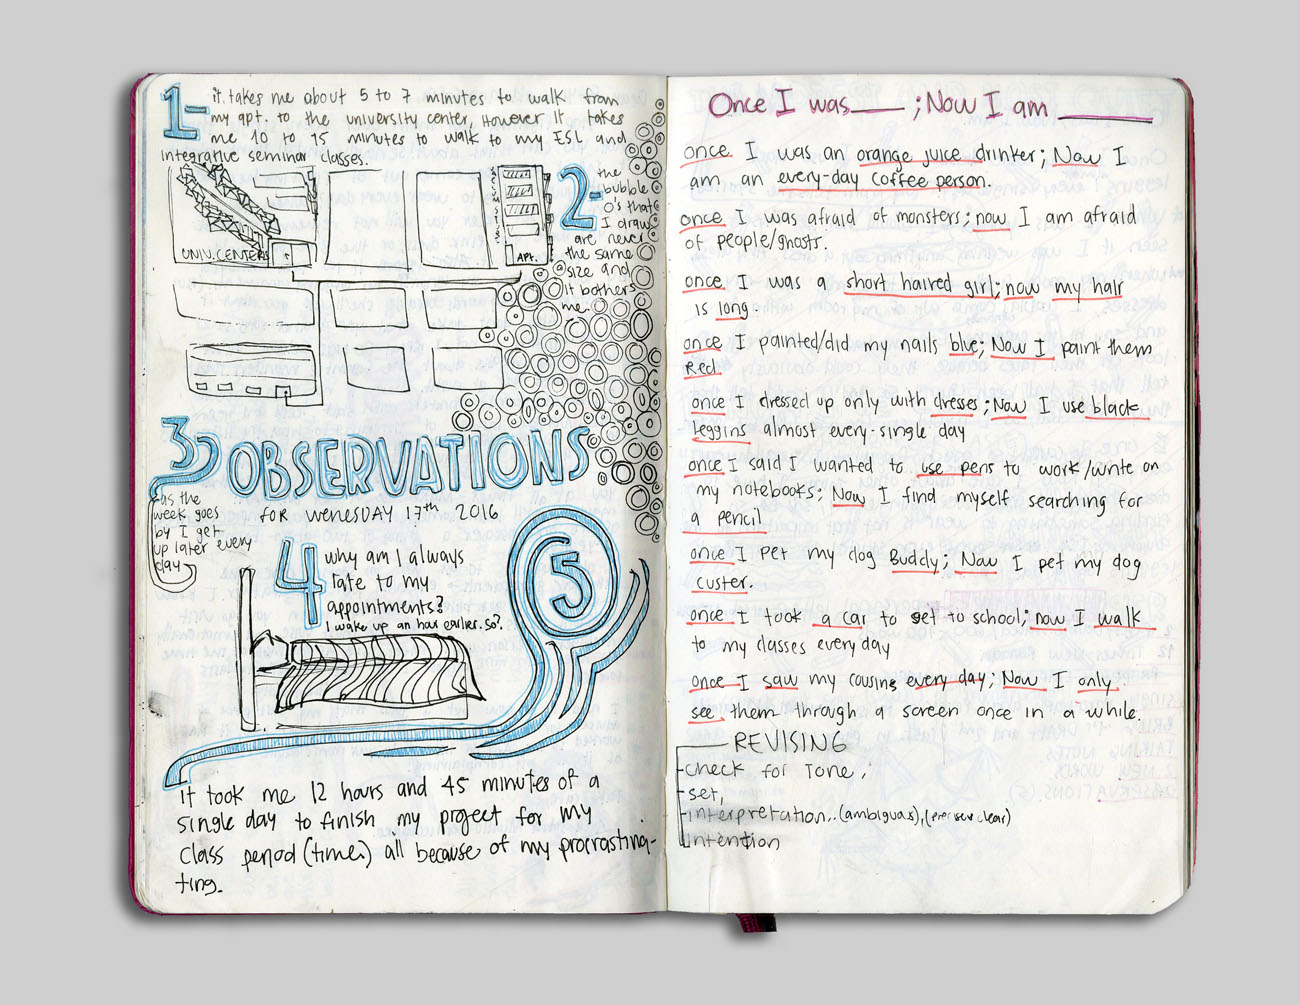 1- it takes me about 5 to 7 minutes to walk from
my apt. to the university center, However it takes
me 10 to 15 minutes to walk to my ESL and
integrative seminar classes.
UNIV. CENTER
APt.
2- the
bubble
O's that
I draw
are never
the same
size and
it bothers
me.
3
OBSERVATIONS
for WENESDAY 17th 2016
-as the
week goes
by I get
up later every
day
4 why am I always
late to my
appointments?
I wake up an hour earlier. so?
5
It took me 12 hours and 45 minutes of a
single day to finish my project for my
class period (time.) all because of my procrasting-
ting.
Once I was___ ; Now I am ______
once I was an orange juice drinker; Now I
am an every-day coffee person.
once I was afraid of monsters; now I am afraid
of people/ghosts.
once I was a short haired girl; now my hair
is long.
once I painted/did my nails blue; Now I paint them
Red.
once I dressed up only with dresses; Now I use black
leggins almost every-single day
once I said I wanted to use pens to work/write on
my notebooks; Now I find myself searching for
a pencil
once I pet my dog Buddy; Now I pet my dog
custer.
once I took a car to get to school; now I walk
to my classes everyday
once I saw my cousins every day; Now I only
see them through a screen once in a while.
REVISING
-check for Tone,
-set,
-interpretation..(ambiguas),(precise clear)
intention